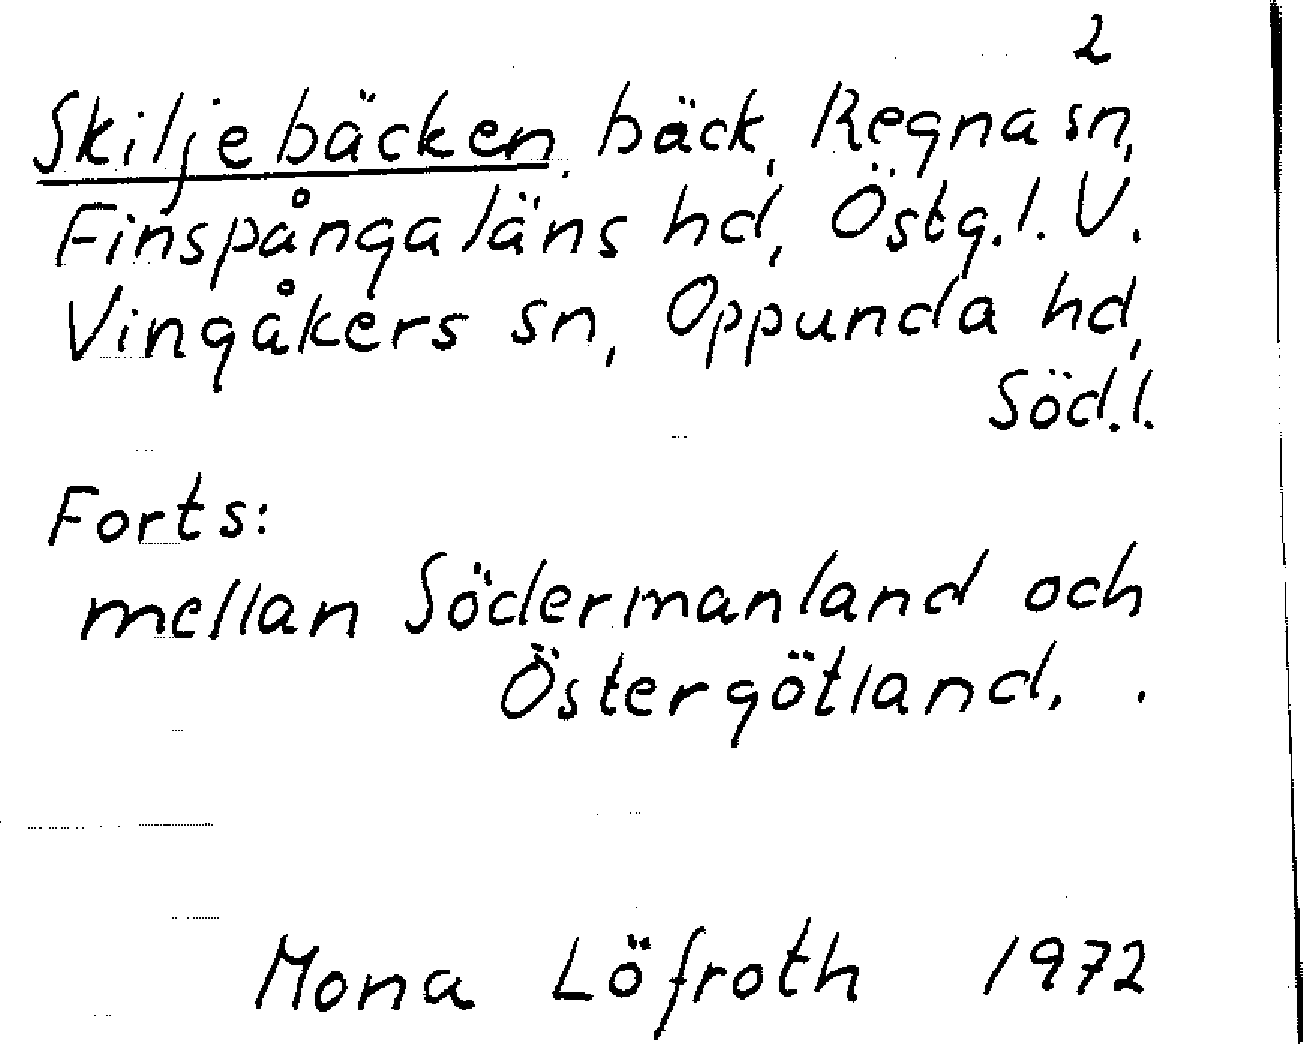 2
Skiljebäcken, bäck, Regna sn,
Finspånga läns hd, Östg.l. V.
Vingåkers sn, Oppunda hd,
Söd.l.
Forts:
mellan Södermanland och
Östergötland.
Mona Löfroth 1972